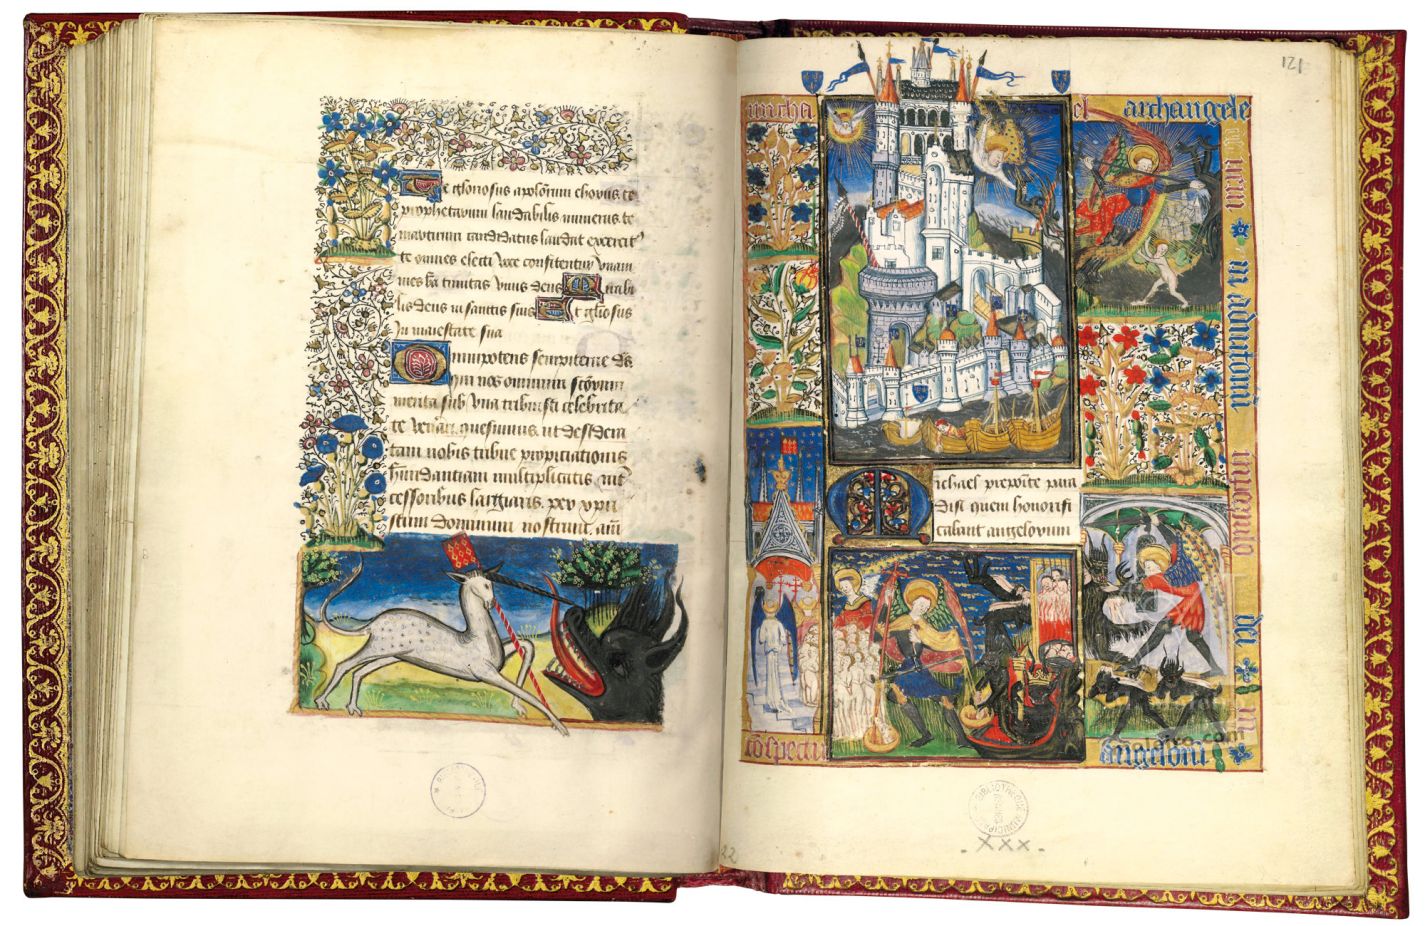 Te gloriosus apostolorum chorus te
prophetarum laudabilis numerus te
martirum candidatus laudat exercit
te omnes electi voce confitentur vnam
mes bta trinitas vnus deus Mirabi
lis deus in santis suis Et gliosus
in maiestate sua
Omnipotens sempiterne ds
qui nos omnium storum
merita sub vna tribuisti celebrita
te venerari quesumus ut desidera
tam nobis tribue propiciationis
habundantiam multiplicatis int
cessoribus largiaris per xpm
stum dominum nostrum am
121
micha el archangele
veni in adiutorium populo dei
Michael preposite para
disi quem honorifi
cabant angelorum
in cospectu angelorum
-XXX-